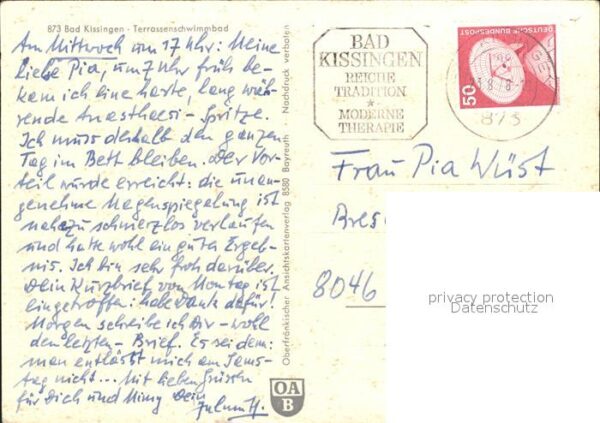 873 Bad Kissingen - Terrassenschwimmbad
Am Mittwoch um 17 Uhr: Meine
liebe Pia, um 7 Uhr früh be-
kam ich eine harte, lang wäh-
rende Anästhaesi-Spritze.
Ich muss deshalb den ganzen
Tag im Bett bleiben. Der Vor-
teil wurde erreicht: die unan-
genehme Magenspiegelung ist
nahezu schmerzlos verlaufen
und hatte wohl ein gutes Ergeb-
nis. Ich bin sehr froh darüber.
Dein Kurzbrief von Montag ist
eingetroffen: habe Dank dafür!
Morgen schreibe ich Dir - wohl
den letzten - Brief. Es sei denn:
man entlässt mich am Sams-
tag nicht... Mit lieben Grüssen
für Dich und Mimy Dein
Oberfränkischer Ansichtskartenverlag 8580 Bayreuth Nachdruck verboten
OA
B
BAD
KISSINGEN
REICHE
TRADITION
MODERNE
THERAPIE
873
DEUTSCHE BUNDESPOST
50
Frau Pia Wüst
Bres
8046
privacy protection
Datenschutz